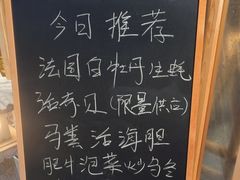 今日推荐
法国白牡丹生蚝
活奇贝(限量供应)
马粪活海胆
肥牛泡菜炒乌冬